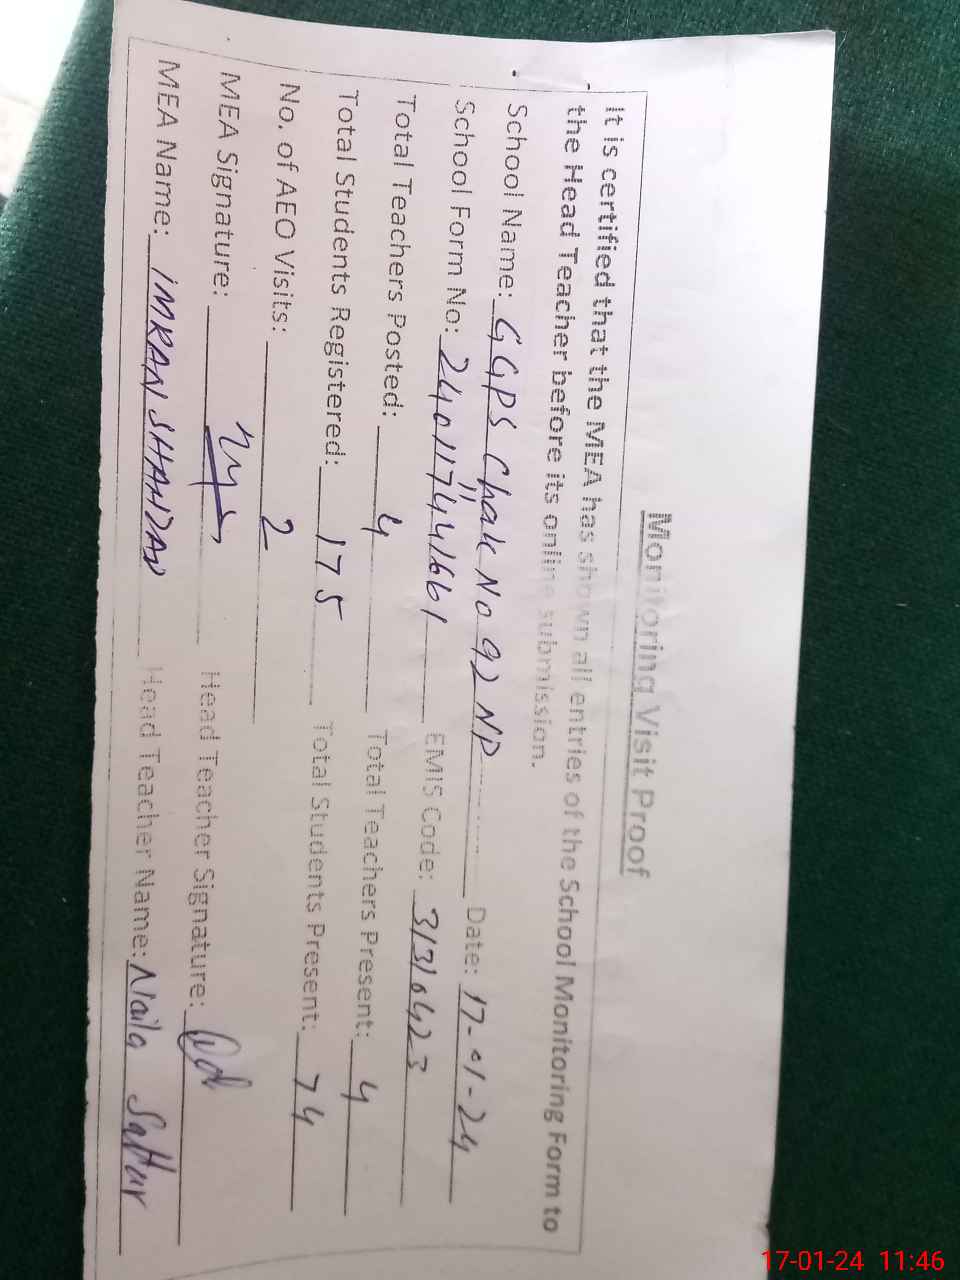 Monitoring Visit Proof
It is certified that the MEA has shown all entries of the School Monitoring Form to
the Head Teacher before its online submission.
School Name: GGPS Chak No 92 NP Date: 17-01-24
School Form No: 240117441661 EMIS Code: 31310423
Total Teachers Posted: 4 Total Teachers Present: 4
Total Students Registered: 175 Total Students Present: 74
No. of AEO Visits: 2
MEA Signature: Head Teacher Signature:
MEA Name: IMRAN SHAHZAD Head Teacher Name: Naila Sattar
17-01-24 11:46